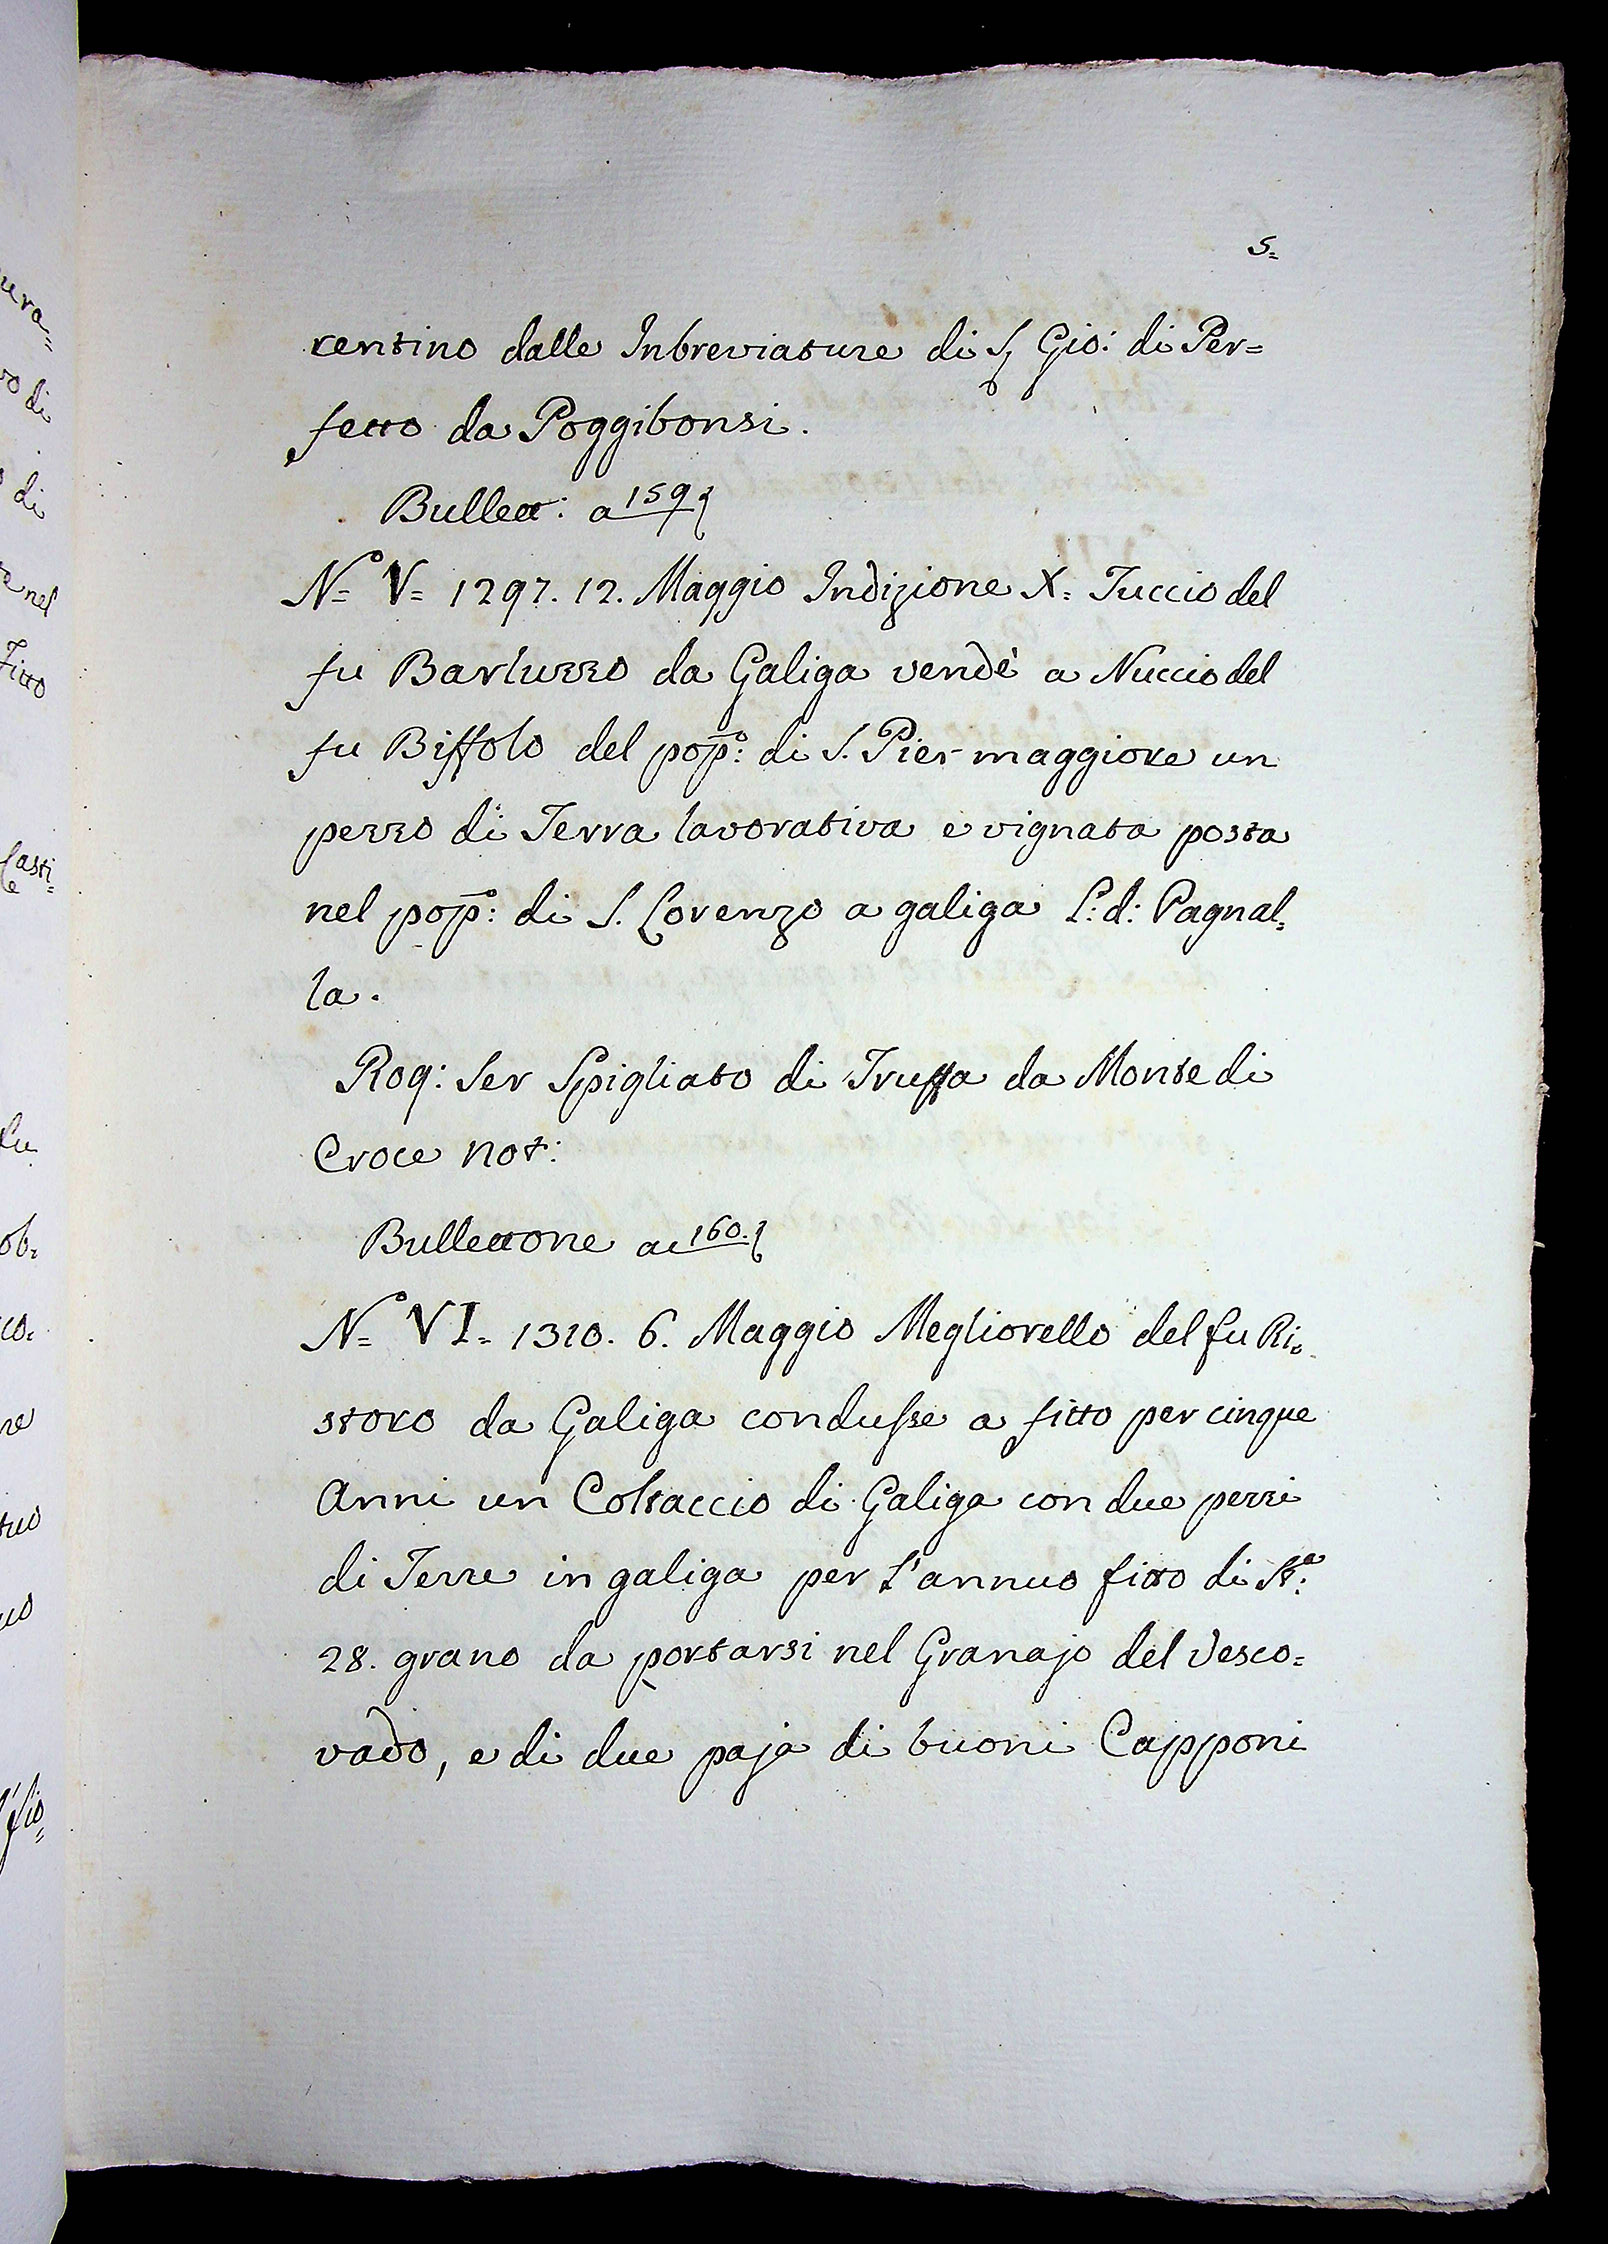 5=
rentino dalle Inbreviature di S. Gio: di Per=
fetto da Poggibonsi.
Bullett: a 159
N.º V= 1297. 12. Maggio Indizione X= Tuccio del
fu Barluzzo da Galiga vendè a Nuccio del
fu Biffolo del pop.º: di S. Pier maggiore un
pezzo di Terra lavorativa e vignata posta
nel pop.º: di S. Lorenzo a galiga l: d: Pagnal=
la.
Rog: Ser Spigliato di Truffa da Monte di
Croce not:
Bullettone a 160.
N.º VI= 1310. 6. Maggio Megliorello del fu Ri=
storo da Galiga condusse a fitto per cinque
Anni un Coltaccio di Galiga con due pezzi
di Terre in galiga per l'annuo fitto di St.ª:
28. grano da portarsi nel Granajo del Vesco=
vado, e di due paja di buoni Capponi
ura=
vo di
di
te nel
Fitto
Casti=
e
ob=
co.
ne
fio=